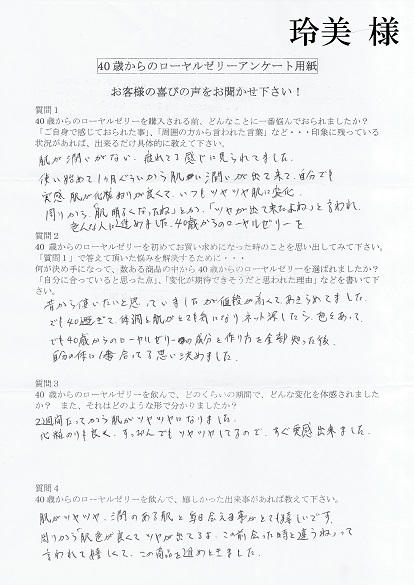 玲美 様
40歳からのローヤルゼリーアンケート用紙
お客様の喜びの声をお聞かせ下さい！
質問１
40歳からのローヤルゼリーを購入される前、どんなことに一番悩んでおられましたか？
「ご自身で感じておられた事」、「周囲の方から言われた言葉」など・・・印象に残っている
状況があれば、出来るだけ具体的に教えて下さい。
肌が潤いがない、疲れてる感じに見られてました。
使い始めて1ヶ月ぐらいから肌に潤いが出て来て、自分でも
実感 肌が化粧のりが良くて、いつもツヤツヤ肌に変化
周りから、肌明るくなったね」とか、「ツヤが出て来たよね」と言われ
色んな人に進めました。40歳からのローヤルゼリーを
質問２
40歳からのローヤルゼリーを初めてお買い求めになった時のことを思い出してみて下さい。
「質問１」で答えて頂いた悩みを解決するために・・・
何が決め手になって、数ある商品の中から40歳からのローヤルゼリーを選ばれましたか？
「自分に合っていると思った点」、「変化が期待できそうだと思われた理由」などを書いて下
さい。
昔から使いたいと思っていましたが値段が高くて、あきらめてました。
でも40過ぎて、体調と肌がとても気になり、ネット探したら、色々あって、
でも40歳からのローヤルゼリーの成分と作り方を全部知った後、
自分の体に1番合ってる思い決めました。
質問３
40歳からのローヤルゼリーを飲んで、どのくらいの期間で、どんな変化を体感されました
か？ また、それはどのような形で分かりましたか？
2週間たってから肌がツヤツヤになりました。
化粧のりも良く、すっぴんでもツヤツヤしてるので、すぐ実感出来ました。
質問４
40歳からのローヤルゼリーを飲んで、嬉しかった出来事があれば教えて下さい。
肌がツヤツヤ、潤のある肌と毎日会える事がとても嬉しいです。
周りから肌色が良くてツヤが出てるよ、この前会った時と違うねって
言われて嬉しくて、この商品を進めときました。